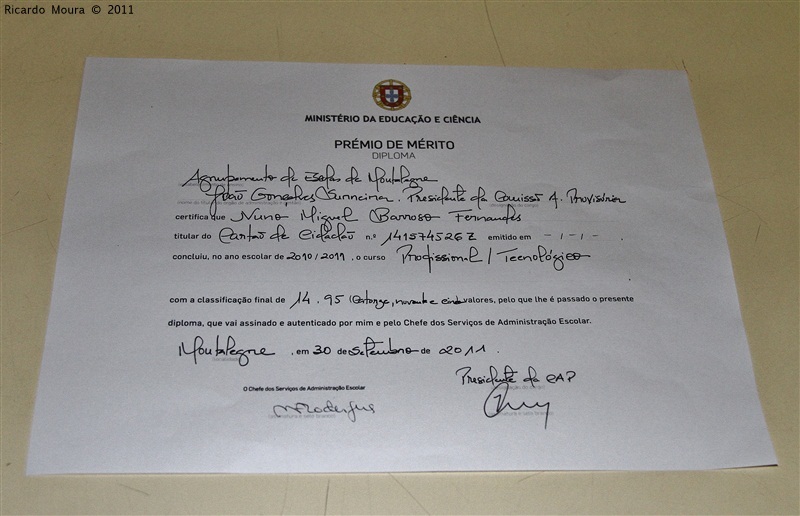 Ricardo Moura © 2011
MINISTÉRIO DA EDUCAÇÃO E CIÊNCIA
PRÉMIO DE MÉRITO
DIPLOMA
Agrupamento de Escolas de Montalegre
João Gonçalves Surreira. Presidente da Comissão A. Provisória
certifica que Nuno Miguel Barroso Fernandes
titular do Cartão de Cidadão n.º 14157452 6Z emitido em - / - / -
concluiu, no ano escolar de 2010/2011, o curso Profissional / Tecnológico
com a classificação final de 14.95 (Catorze, noventa e cinco valores, pelo que lhe é passado o presente
diploma, que vai assinado e autenticado por mim e pelo Chefe dos Serviços de Administração Escolar.
Montalegre, em 30 de Setembro de 2011.
Presidente da CAP
O Chefe dos Serviços de Administração Escolar